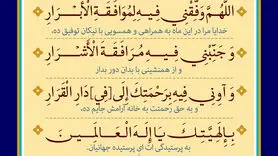 اَللّهُمَّ وَفِّقْنی فیهِ لِمُوافَقَةِ الْأَبْرارِ
خدایا مرا در این ماه به همراهی و همسویی با نیکان توفیق ده،
وَ جَنِّبْنی فیهِ مُرافَقَةَ الْأَشْرارِ
و از همنشینی با بدان دور بدار
وَ آوِنی فیهِ بِرَحْمَتِکَ إِلی [فِی] دارِ الْقَرارِ
و به حق رحمتت به خانه آرامش جایم ده،
بِإِلهِیَّتِکَ یا إِلهَ الْعالَمینَ
به پرستیدگی ات ای پرستیده جهانیان.